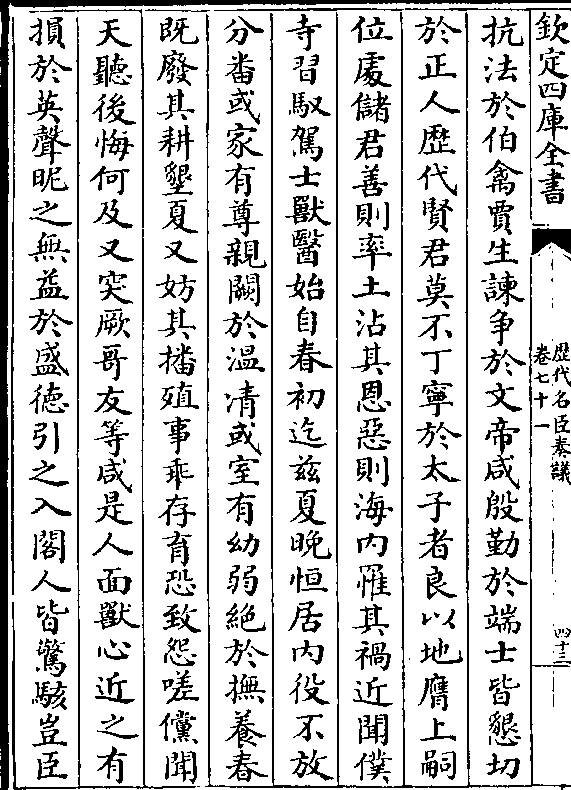 欽定四庫全書
歴代名臣奏議
卷七十一
四十三
抗法於伯禽賈生諫争於文帝咸殷勤於端士皆懇切
於正人歴代賢君莫不丁寧於太子者良以地膺上嗣
位處儲君善則率土沾其恩惡則海内罹其禍近聞僕
寺習馭駕士獸醫始自春初迄兹夏晚恒居内役不放
分畨或家有尊親闕於温凊或室有幼弱絶於撫養春
既廢其耕墾夏又妨其播殖事乖存育恐致怨嗟儻聞
天聽後悔何及又突厥哥友等咸是人面獸心近之有
損於英聲昵之無益於盛徳引之入閣人皆驚駭豈臣